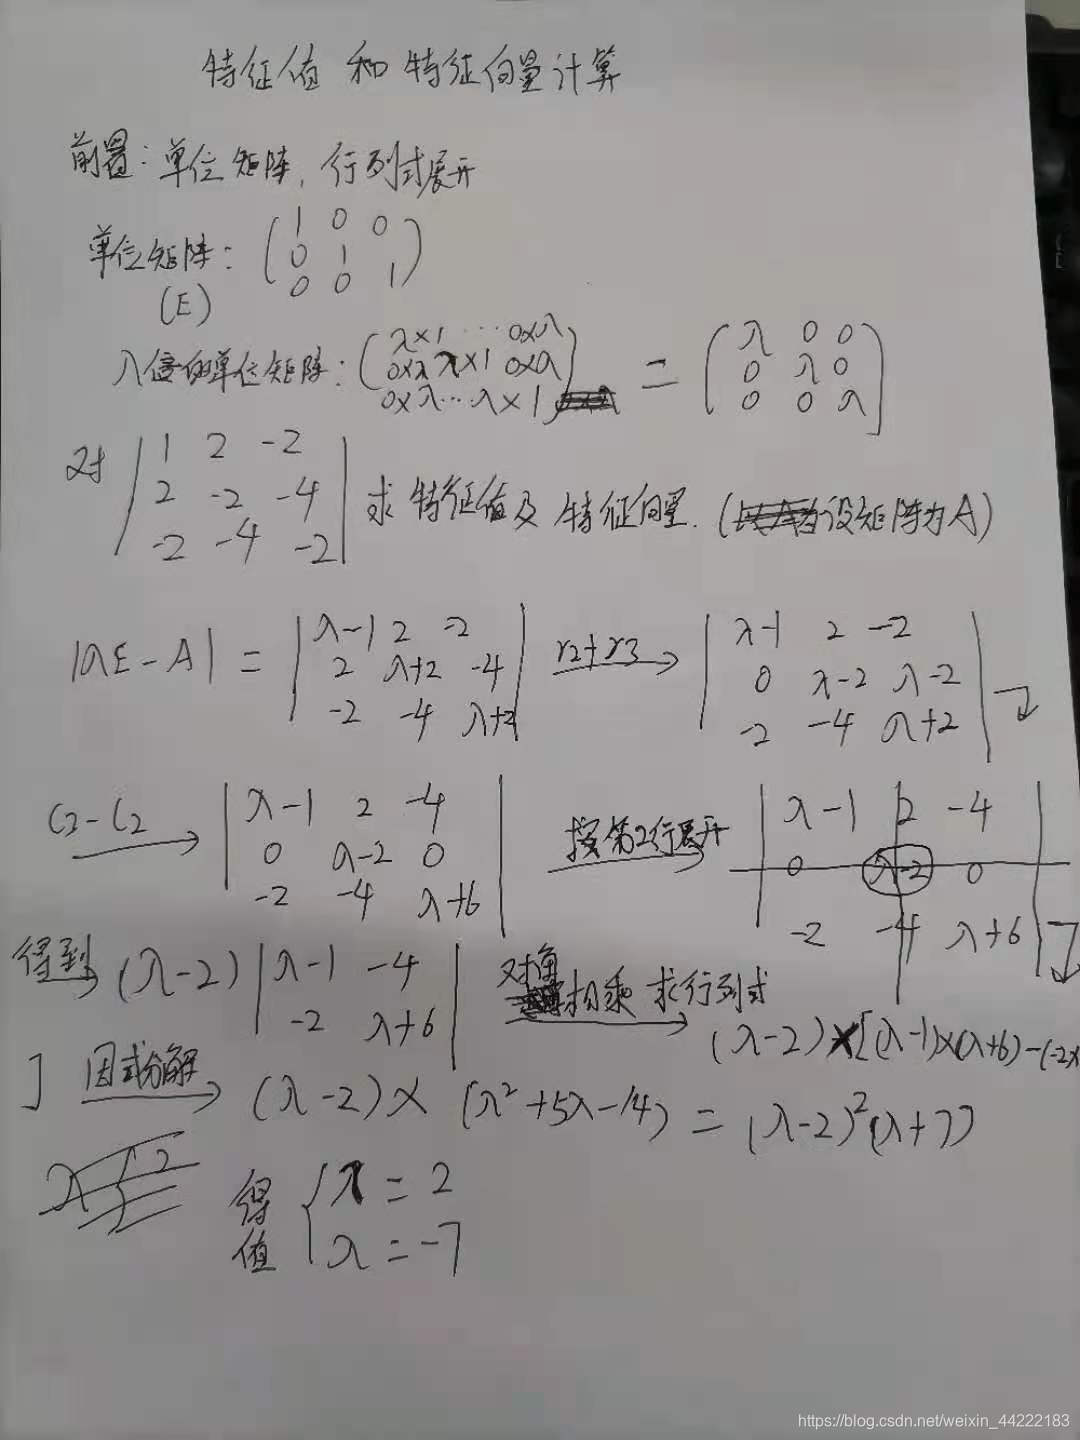 特征值 和 特征向量计算
前置：单位矩阵，行列式展开
单位矩阵：( 1 0 0
0 1
0 0 1 )
(E)
λ倍的单位矩阵：( λ×1 ··· 0×λ
0×λ λ×1 0×λ
0×λ ··· λ×1 ) = ( λ 0 0
0 λ 0
0 0 λ )
对 | 1 2 -2
2 -2 -4
-2 -4 -2 | 求 特征值及 特征向量. (设矩阵为A)
|λE-A| = | λ-1 2 -2
2 λ+2 -4
-2 -4 λ+2 | r2+r3 → | λ-1 2 -2
0 λ-2 λ-2
-2 -4 λ+2 |
C3-C2 → | λ-1 2 -4
0 λ-2 0
-2 -4 λ+6 | 按第2行展开 → | λ-1 2 -4
0 λ-2 0
-2 -4 λ+6 |
得到 → (λ-2) | λ-1 -4
-2 λ+6 | 对角相乘 求行列式 → (λ-2)×[(λ-1)×(λ+6)-(-2×
] 因式分解 → (λ-2)×(λ²+5λ-14) = (λ-2)²(λ+7)
得值 { λ = 2
λ = -7
https://blog.csdn.net/weixin_44222183